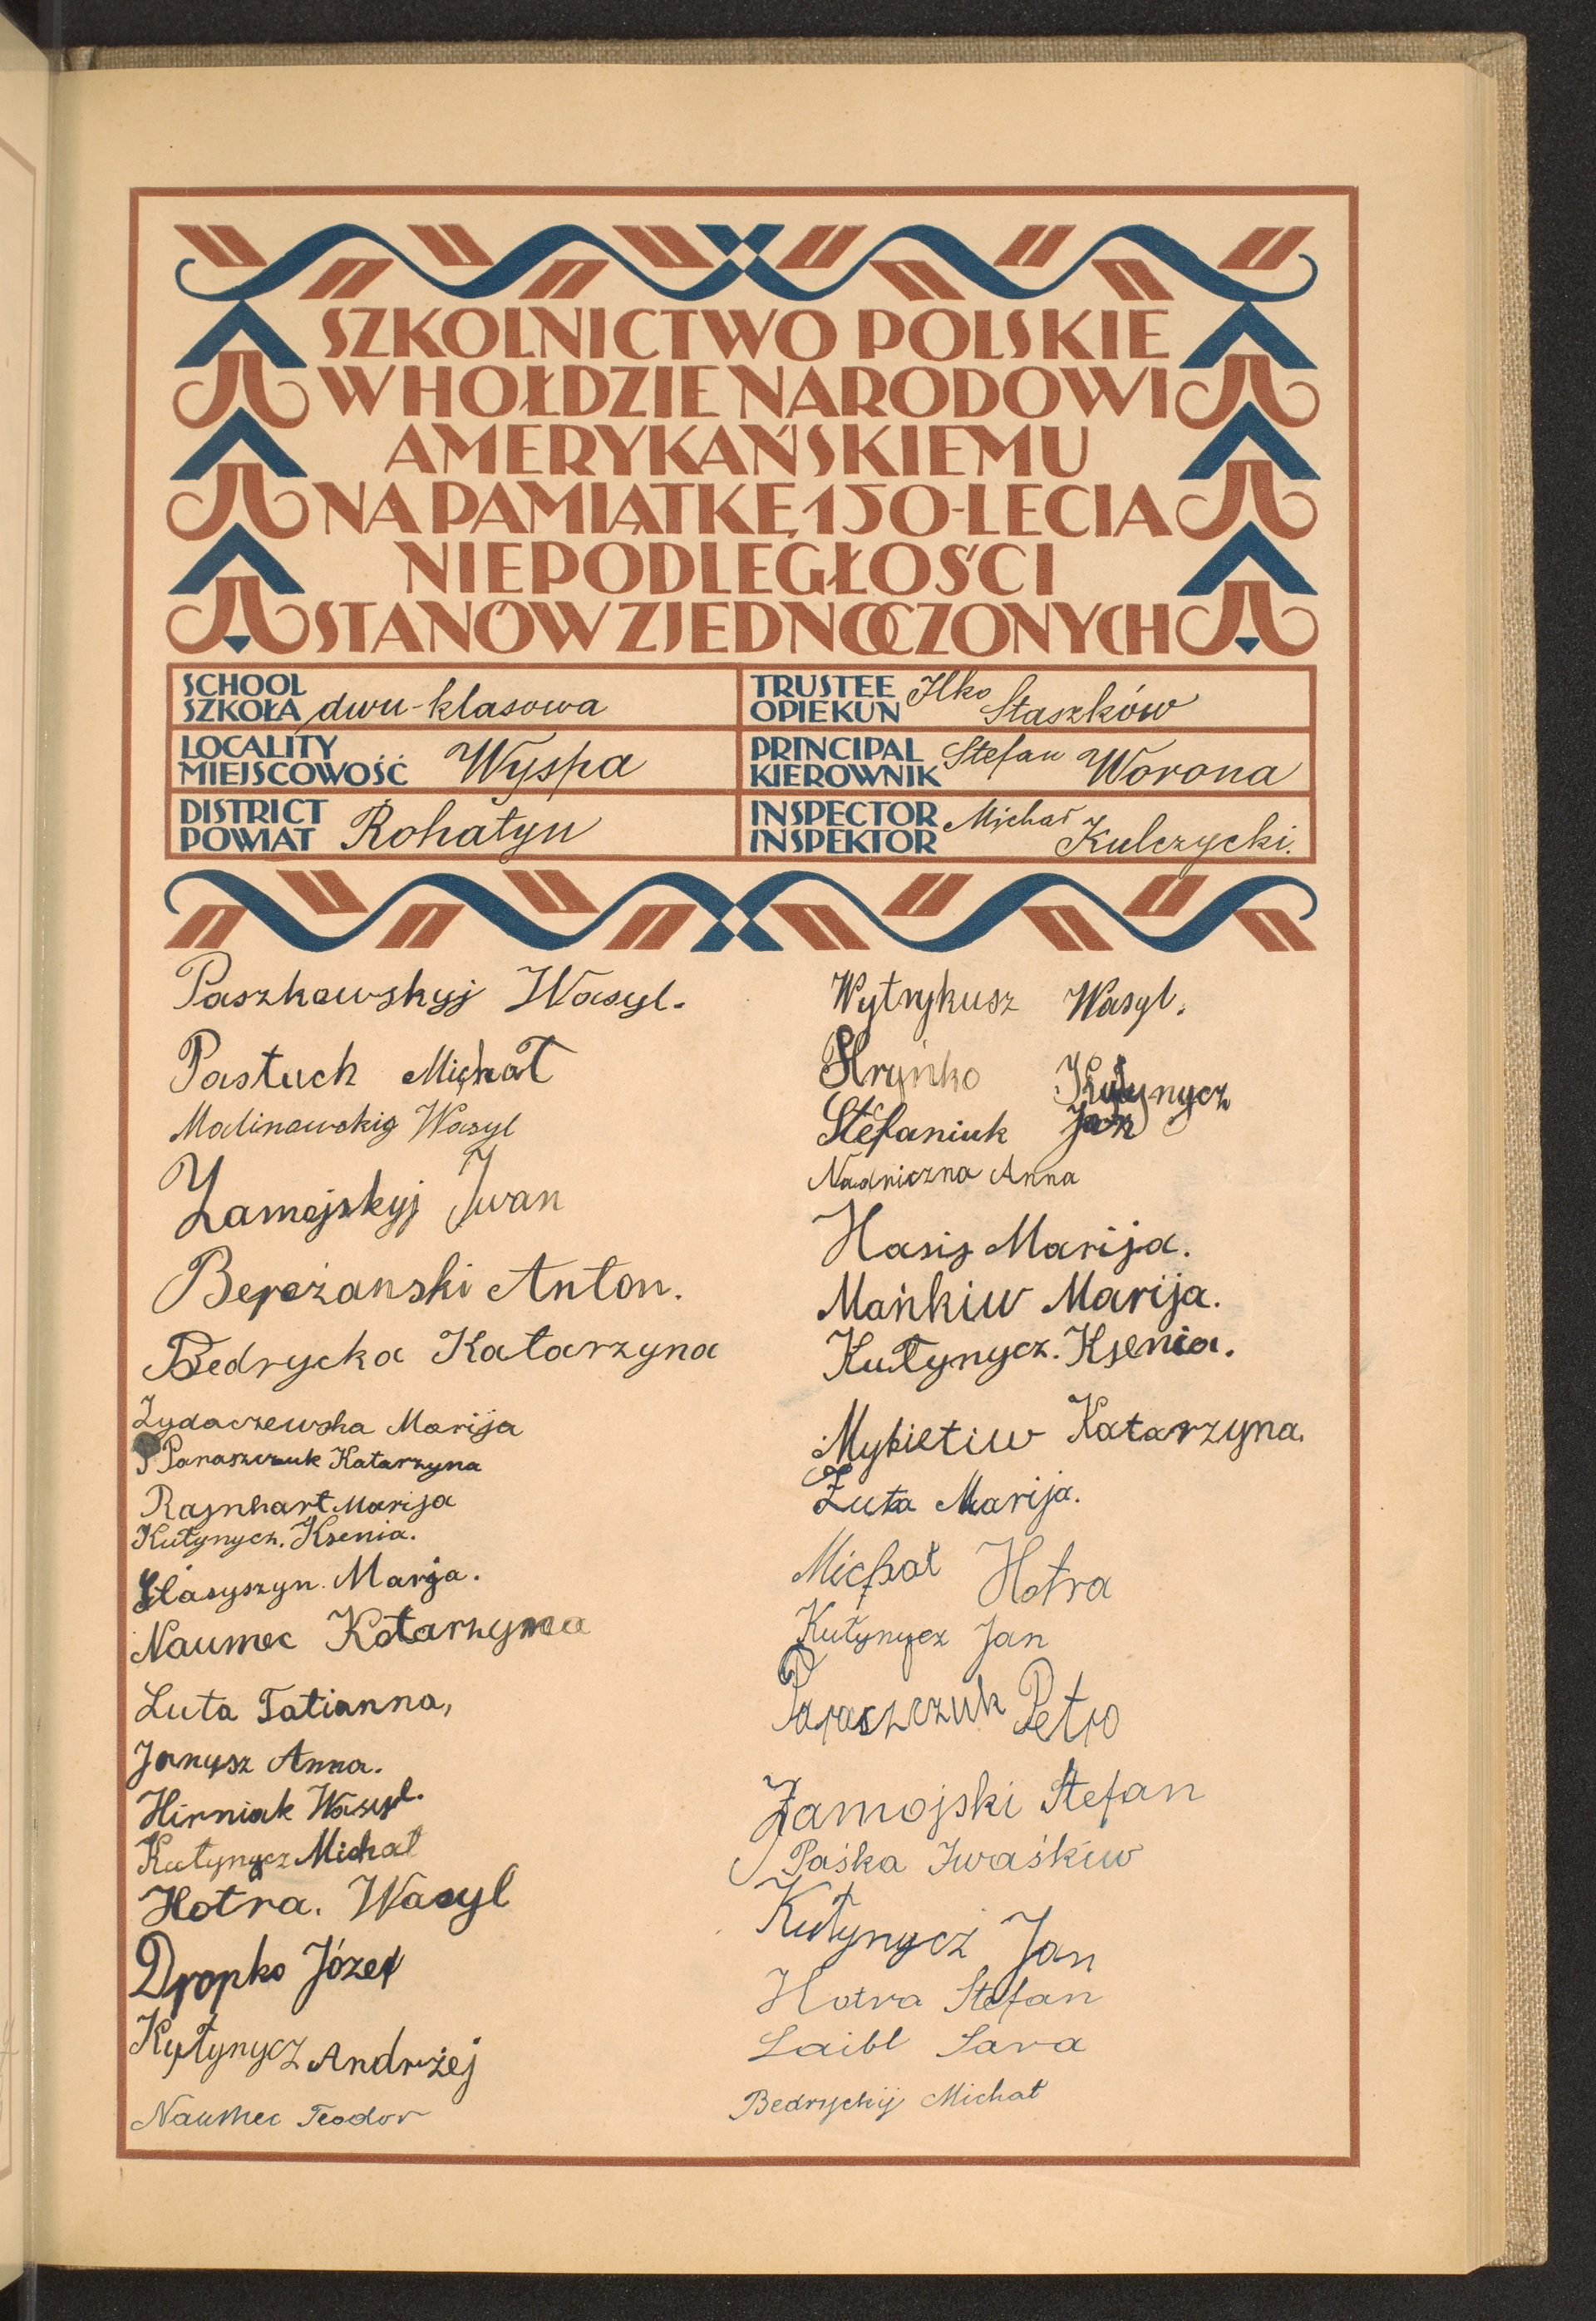 SZKOLNICTWO POLSKIE
W HOŁDZIE NARODOWI
AMERYKAŃSKIEMU
NA PAMIĄTKĘ 150-LECIA
NIEPODLEGŁOŚCI
STANÓW ZJEDNOCZONYCH
SCHOOL
SZKOŁA dwu-klasowa
TRUSTEE
OPIEKUN Ilko Staszków
LOCALITY
MIEJSCOWOŚĆ Wyspa
PRINCIPAL
KIEROWNIK Stefan Worona
DISTRICT
POWIAT Rohatyn
INSPECTOR
INSPEKTOR Michał Kulczycki.
Paszkowskyj Wasyl.
Pastuch Michał
Malinowskig Wasyl
Zamojskyj Iwan
Bereżanski Anton.
Bedrycka Katarzyna
Żydaczewska Marija
Paraszczuk Katarzyna
Rajnhart Marija
Kutynycz. Ksenia.
Hlasyszyn. Marja.
Naumec Katarzyna
Luta Tatianna,
Janysz Anna.
Hirniak Wasyl.
Kutynycz Michał
Hotra. Wasyl
Dropko Józef
Kutynycz Andrzej
Naumec Teodor
Wytrykusz Wasyl.
Hryńko Kutynycz
Stefaniuk Jan
Nadniczna Anna
Hasij Marija.
Mańkiw Marija.
Kutynycz. Ksenia.
Mykietiw Katarzyna.
Luta Marija.
Michał Hotra
Kutynycz Jan
Paraszczuk Petro
Zamojski Stefan
Paśka Iwaśkiw
Kutynycz Jan
Hotra Stefan
Laibl Sara
Bedrychij Michał